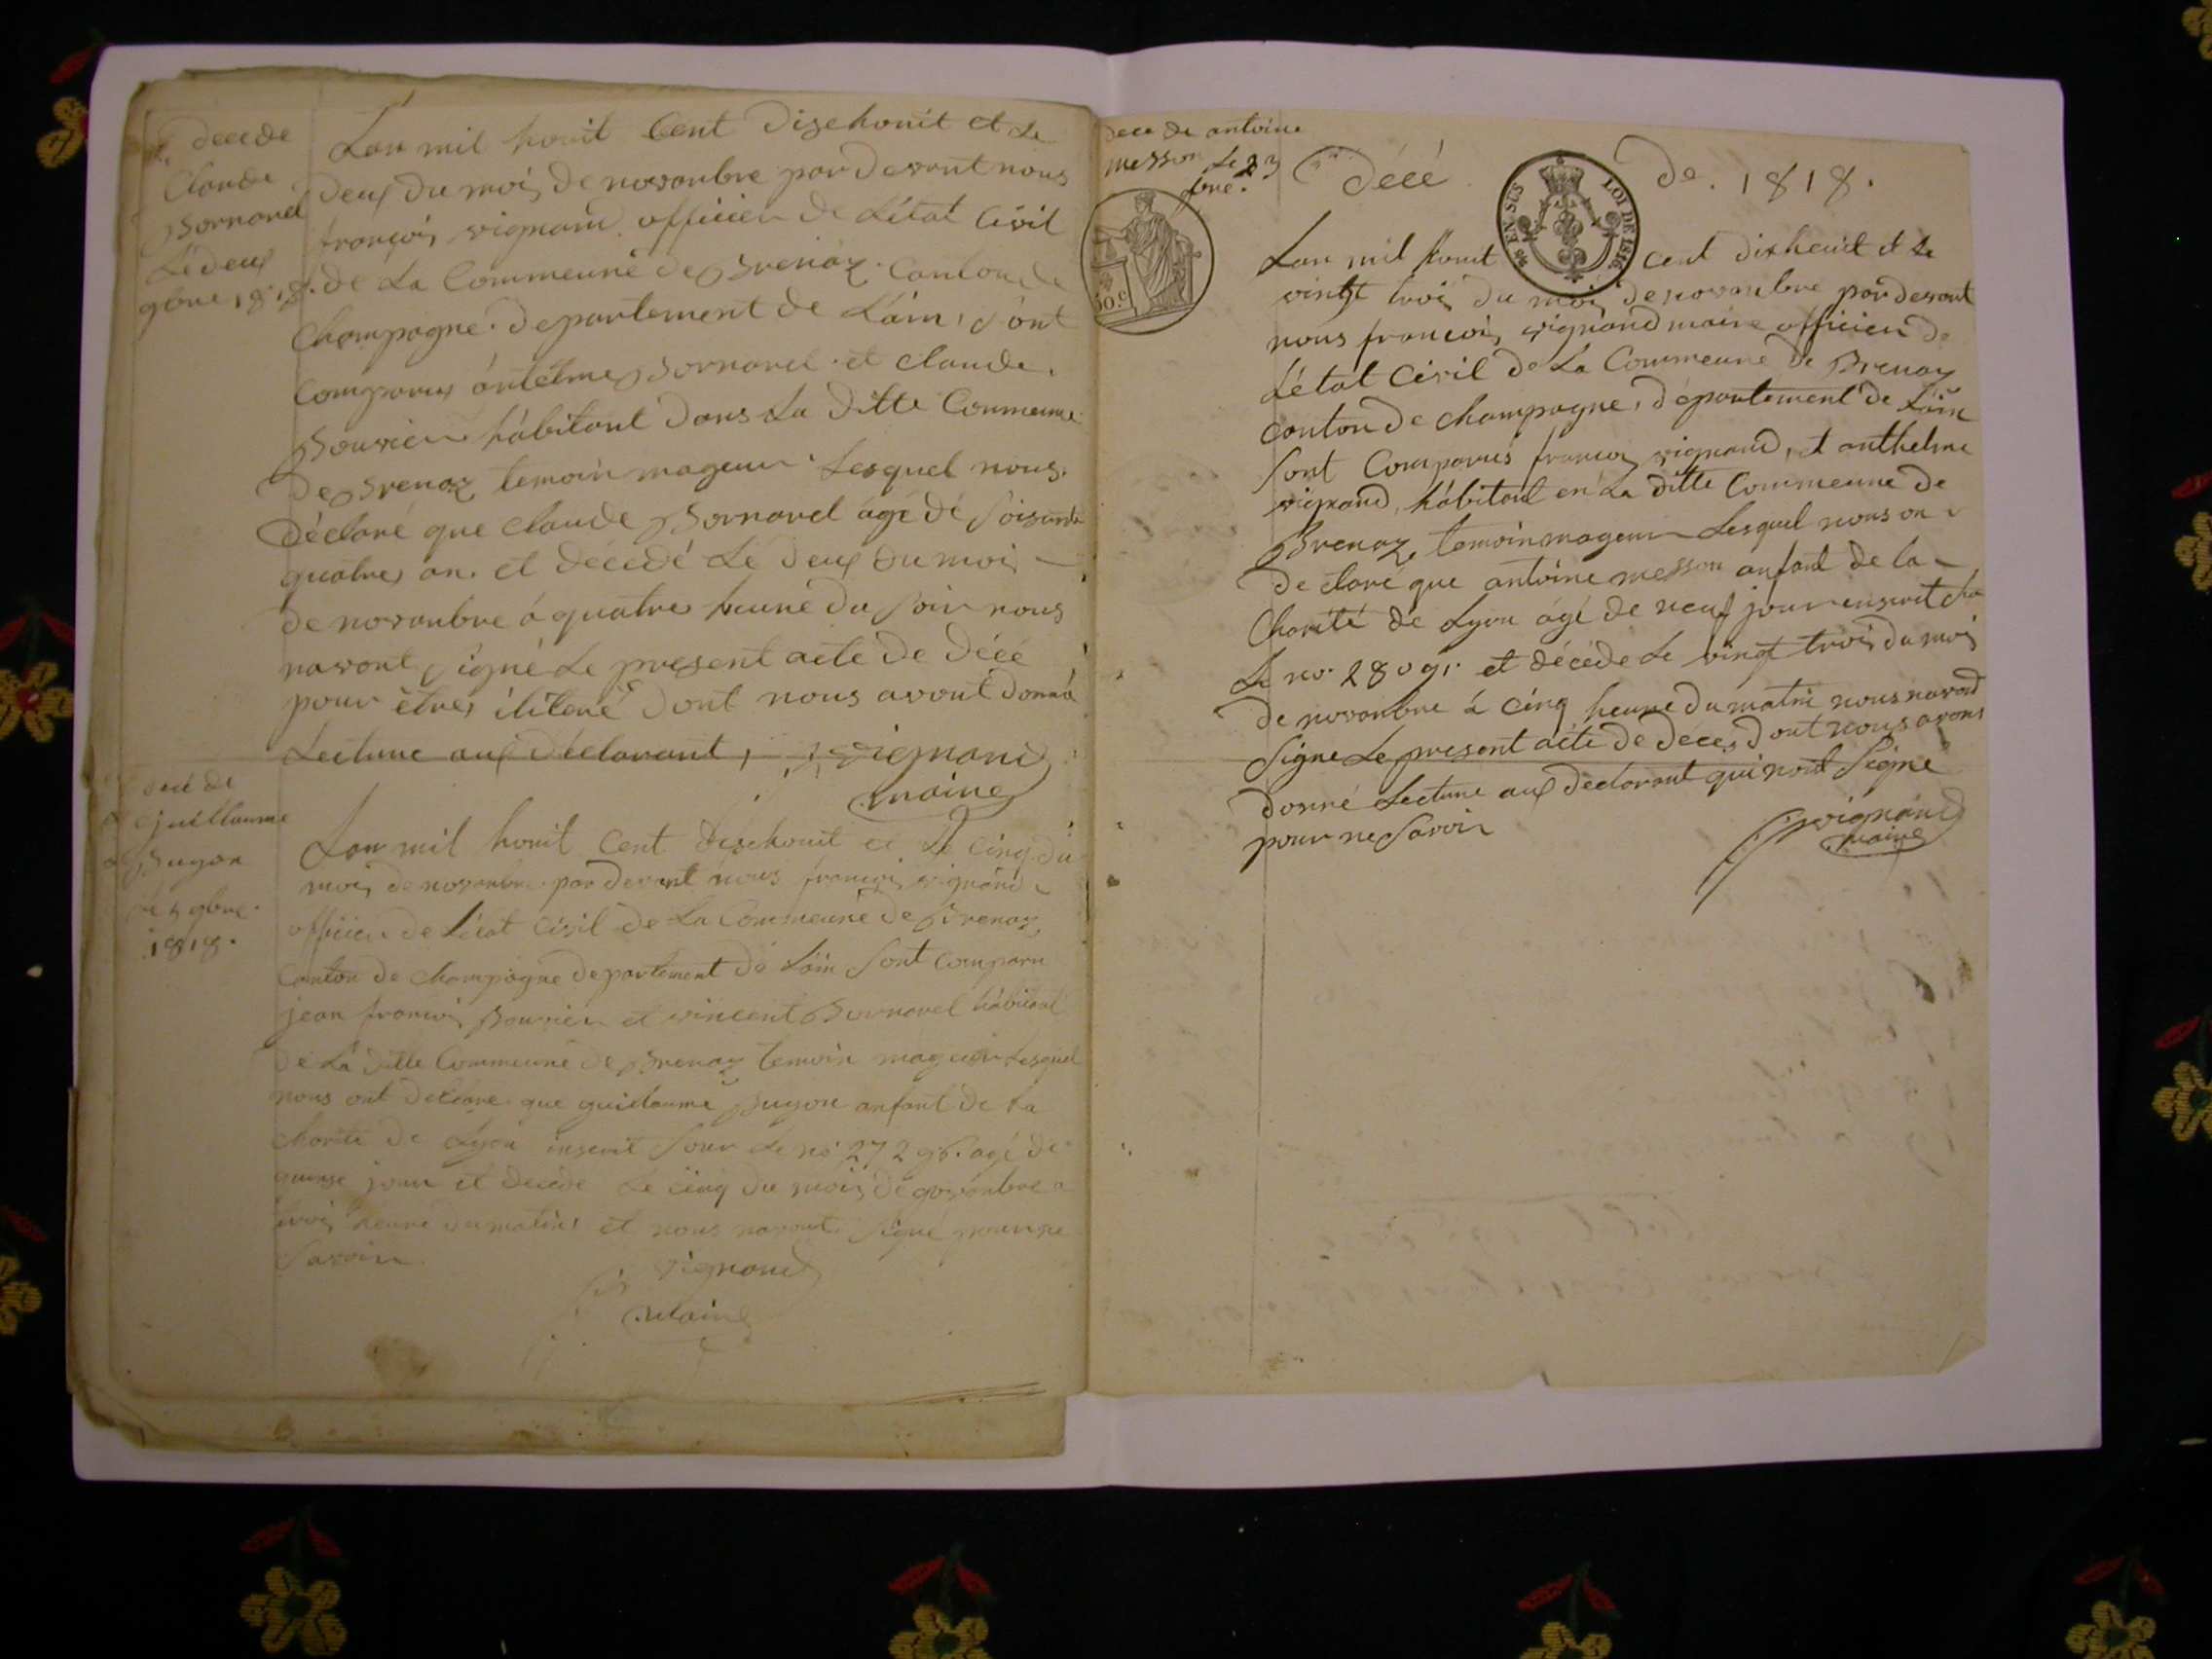 decede
Claude
Bornarel
Le deux
9bre 1818.
Lan mil houit Cent Disehouit et Le
Deux du mois de novanbre par devant nous
françois vignand officier de Létat Civil
de La Commeune de Brenaz. Canton de
Champagne. Departement de Láin, Sont
Comparus ántelme Bornarel. et Claude.
Bouvier hábitant dans La ditte Commeune
de Brenaz temoin mageur Lesquel nous.
déclaré que Claude Bornarel ágé dé Soisante
quatres an. et décédé Le deux du mois
de novanbre á quatres heure du Soir nous
navont Signé Le present acte De décé
pour êtres ilitéré Dont nous avont donné
Lecture aux déclarant, vignand
maire
décé de
guillaume
Buyon
le 5 9bre.
1818.
Lan mil houit Cent disehouit et Le Cinq du
mois de novanbre par devant nous françois vignand
officier de Létat Civil de La Commeune de Brenaz,
Canton de Champagne departement dé Láin Sont Comparu
jean francois Bouvier et vincent Bornarel hábitant
dé Lá ditte Commeune de Brenaz temoin mageur Lesquel
nous ont déclaré que guillaume Buyon anfant de La
charité de Lyon inscrit Sour Le no 27296. agé de
quinse jour et décédé Le cinq du mois de novanbre a
trois heure du matin et nous navont Signé pour ne
Savoir.
vignand
Maire
Dece de antoine
messon Le 23
9bre.
10 c
décé de. 1818.
EN SUS
LOI DE 1816
Lan mil houit cent dixheuit et Le
vingt trois du mois de novanbre par devant
nous françois vignand maire officier de
Létat Civil de La Commeune de Brenaz
Canton de champagne, département de Láin
Sont Comparus françois vignand, et anthelme
vignand, hábitant en La ditte Commeune de
Brenaz, temoin mageur Lesquel nous on
déclaré que antoine messon anfant de la
Charité de Lyon ágé de neuf jour enscrit
Le no. 28091. et décédé Le vingt trois du mois
de novanbre á Cinq heure du matin nous navont
Signe Le present acte de décé, dont nous avons
donné Lecture aux déclarant qui nont Signé
pour ne Savoir vignand
maire